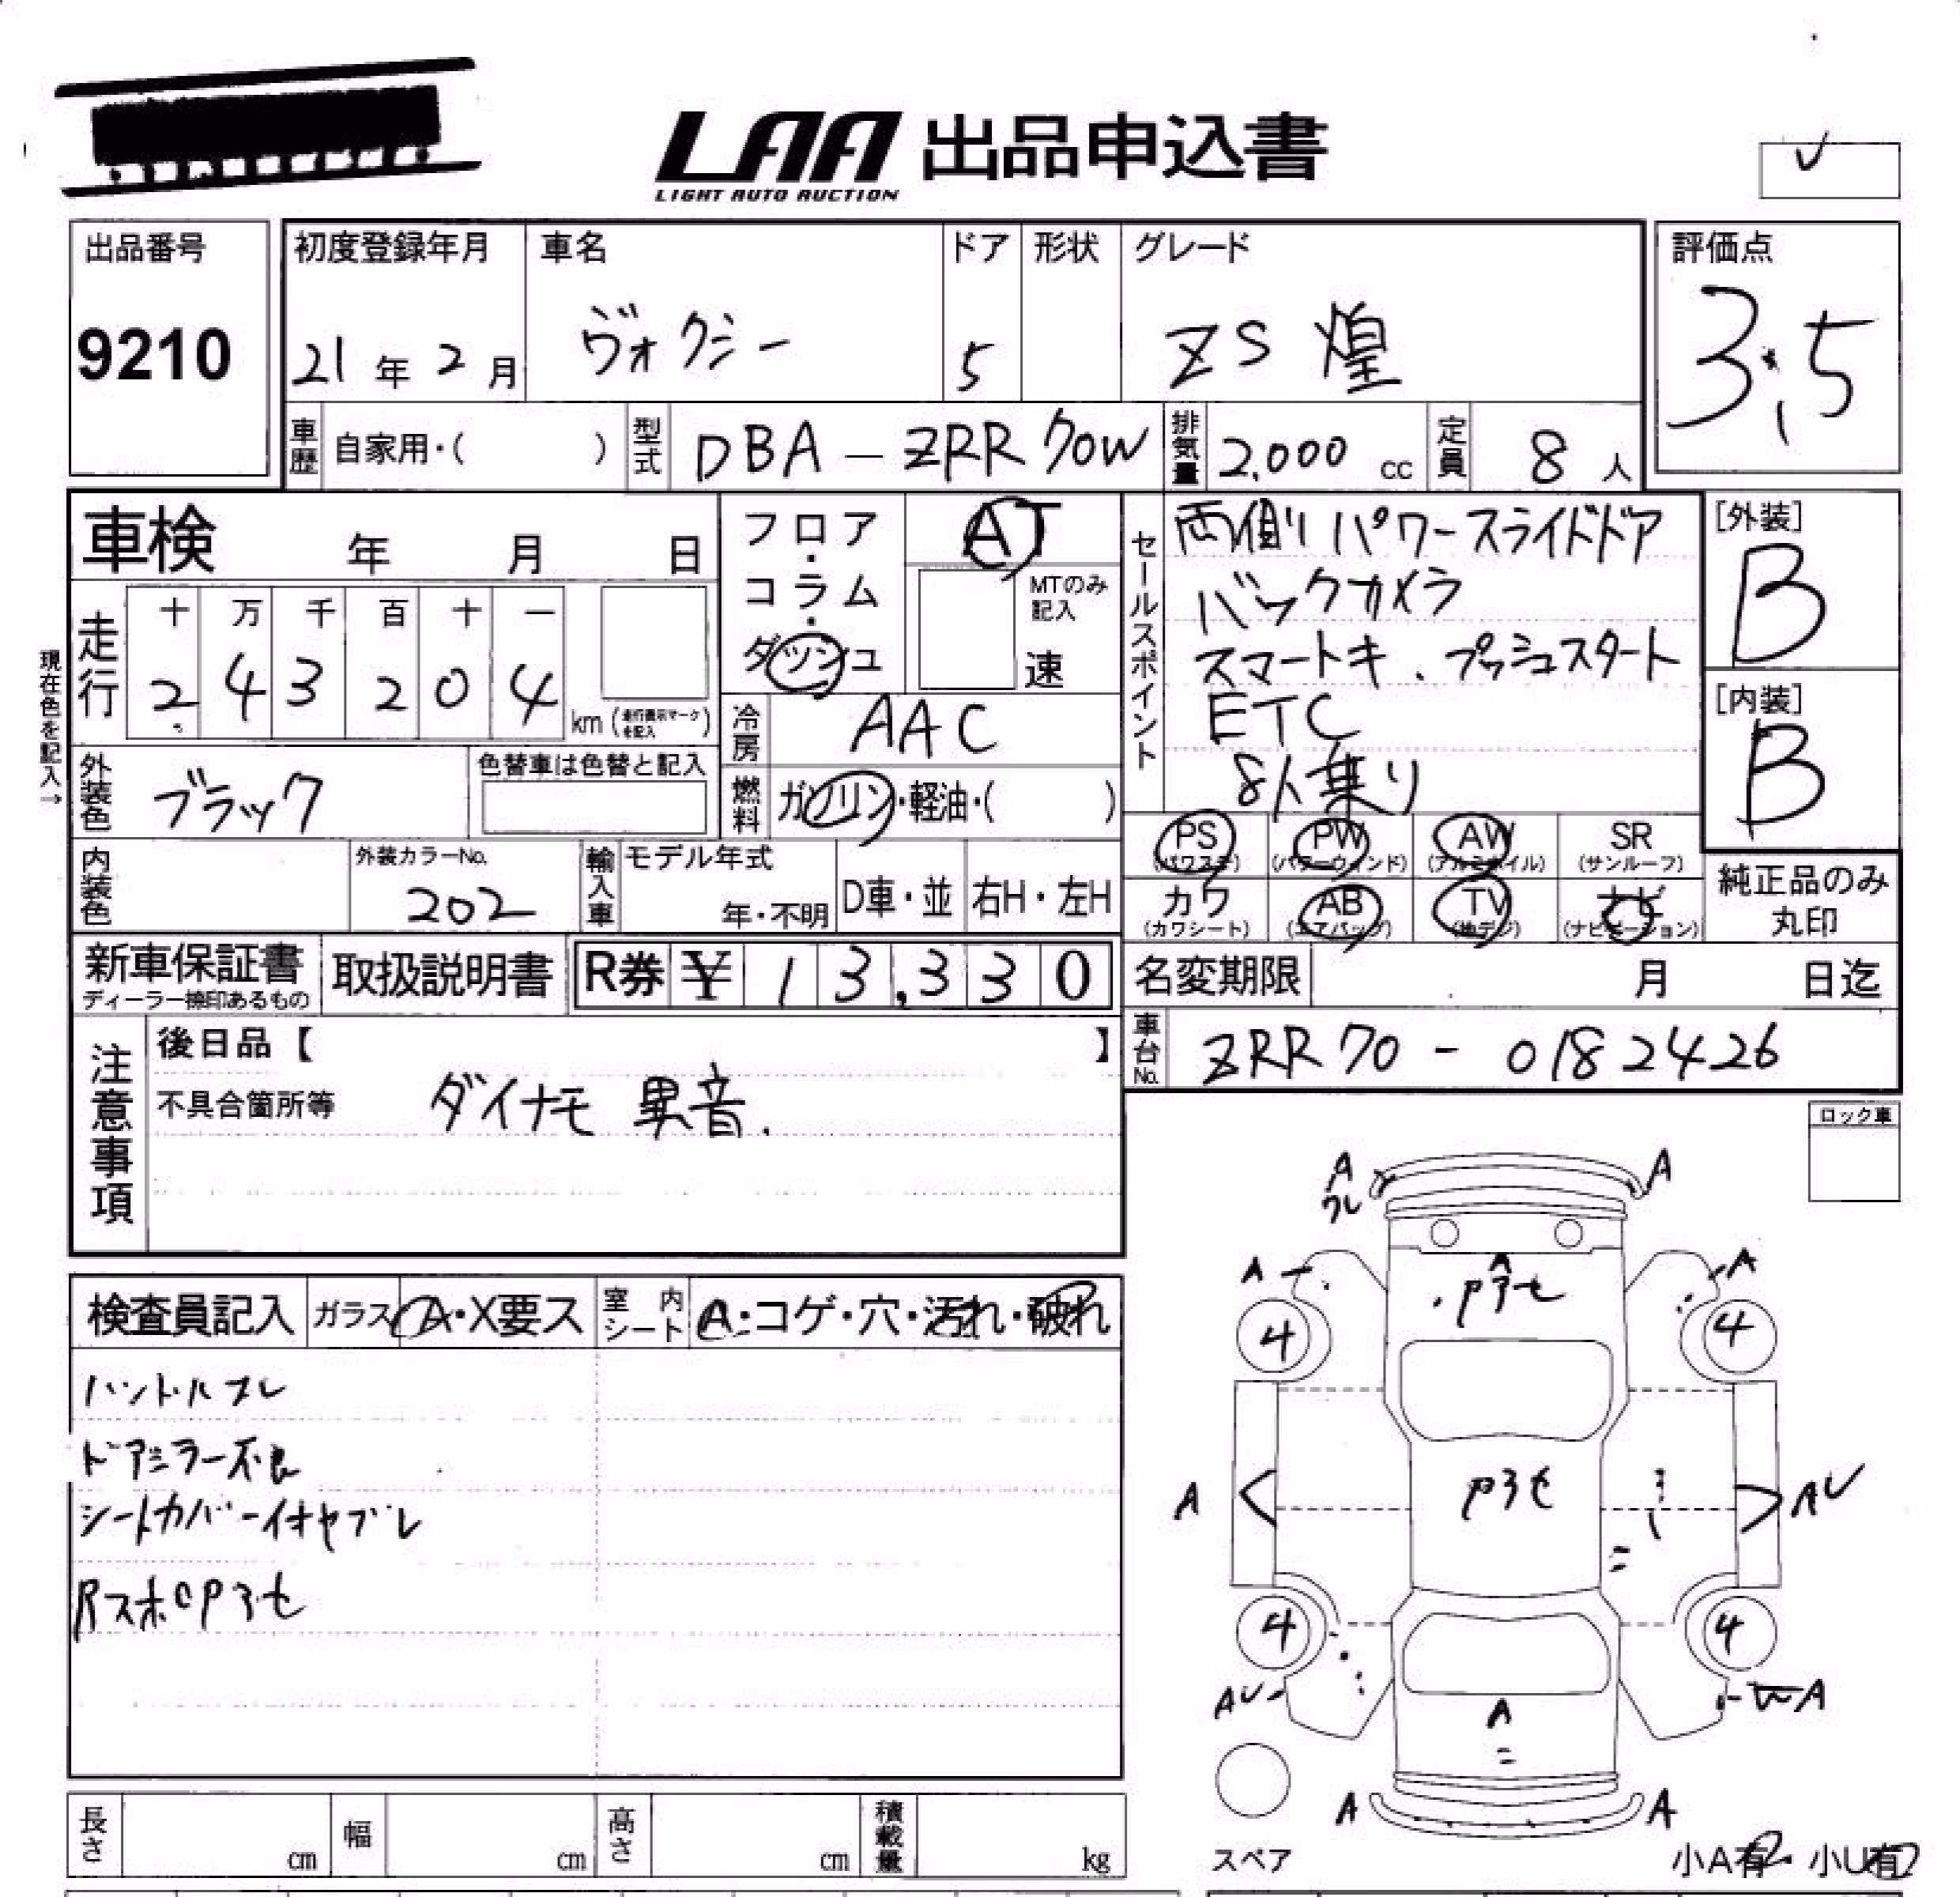 LAA 出品申込書
LIGHT AUTO AUCTION
出品番号
9210
初度登録年月 車名 ドア 形状 グレード
21年2月 ヴォクシー 5 ZS 煌
評価点
3.5
車歴 自家用・( ) 型式 DBA-ZRR70W 排気量 2,000 cc 定員 8人
車検 年 月 日
フロア・コラム・ダッシュ
AT
MTのみ記入
速
セールスポイント
両側パワースライドドア
バックカメラ
スマートキ、プッシュスタート
ETC
8人乗り
[外装]
B
[内装]
B
現在色を記入→
走行
十 万 千 百 十 一
2 4 3 2 0 4 km (走行表示マークを記入)
冷房 AAC
外装色 ブラック 色替車は色替と記入
燃料 ガソリン・軽油・( )
PS (パワステ) PW (パワーウィンド) AW (アルミホイル) SR (サンルーフ)
カワ (カワシート) AB (エアバッグ) TV (地デジ) ナビ (ナビゲーション)
純正品のみ丸印
内装色 外装カラーNo. 202 輸入車 モデル年式 年・不明 D車・並 右H・左H
新車保証書 ディーラー捺印あるもの 取扱説明書 R券 ¥ 13,330
名変期限 月 日迄
車台No. ZRR70-0182426
注意事項
後日品【 】
不具合箇所等 ダイナモ 異音.
ロック車
検査員記入 ガラス A・X要ス 室内シート A・コゲ・穴・汚れ・破れ
ハンドルスレ
ドアミラー不良
シートカバー付ヤブレ
RスポCPアセ
A A
ワレ
A A A
Pアセ
4 4
Pアセ
A AU
4 4
AU WA
A
A A
スペア
小A有・小U有
長さ cm 幅 cm 高さ cm 積載量 kg